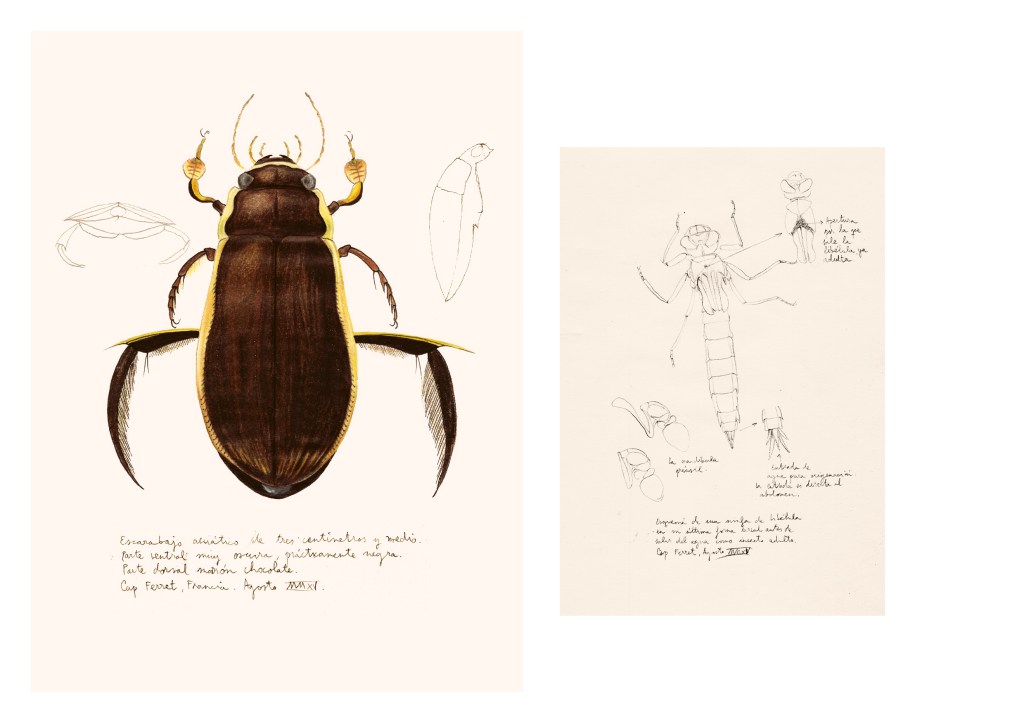 Escarabajo acuático de tres centímetros y medio.
Parte ventral muy oscura, prácticamente negra.
Parte dorsal marrón chocolate.
Cap Ferret, Francia. Agosto MMXV.
Apertura
por la que
sale la
libélula ya
adulta
La mandíbula
prensil.
Entrada de
agua para oxigenación
la cabeza es directa al
abdomen.
Esquema de una ninfa de libélula
en su última forma larval antes de
salir del agua como insecto adulto.
Cap Ferret, Agosto MMXV